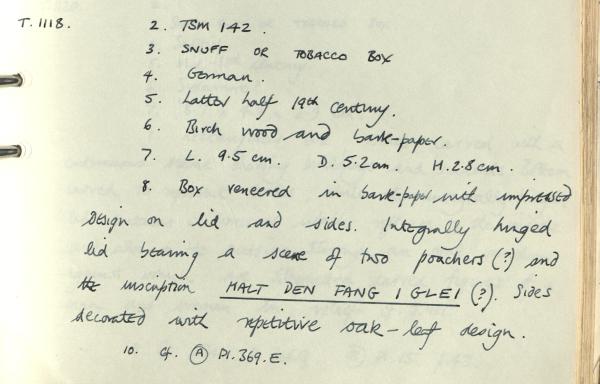 T.1118. 2. TSM 142.
3. SNUFF OR TOBACCO BOX
4. German.
5. Latter half 19th Century.
6. Birch wood and bark-paper.
7. L. 9.5 cm. D. 5.2 cm. H. 2.8 cm.
8. Box veneered in bark-paper with impressed
design on lid and sides. Integrally hinged
lid bearing a scene of two poachers (?) and
the inscription HALT DEN FANG I GLEI (?). Sides
decorated with repetitive oak-leaf design.
10. Cf. A Pl. 369. E.